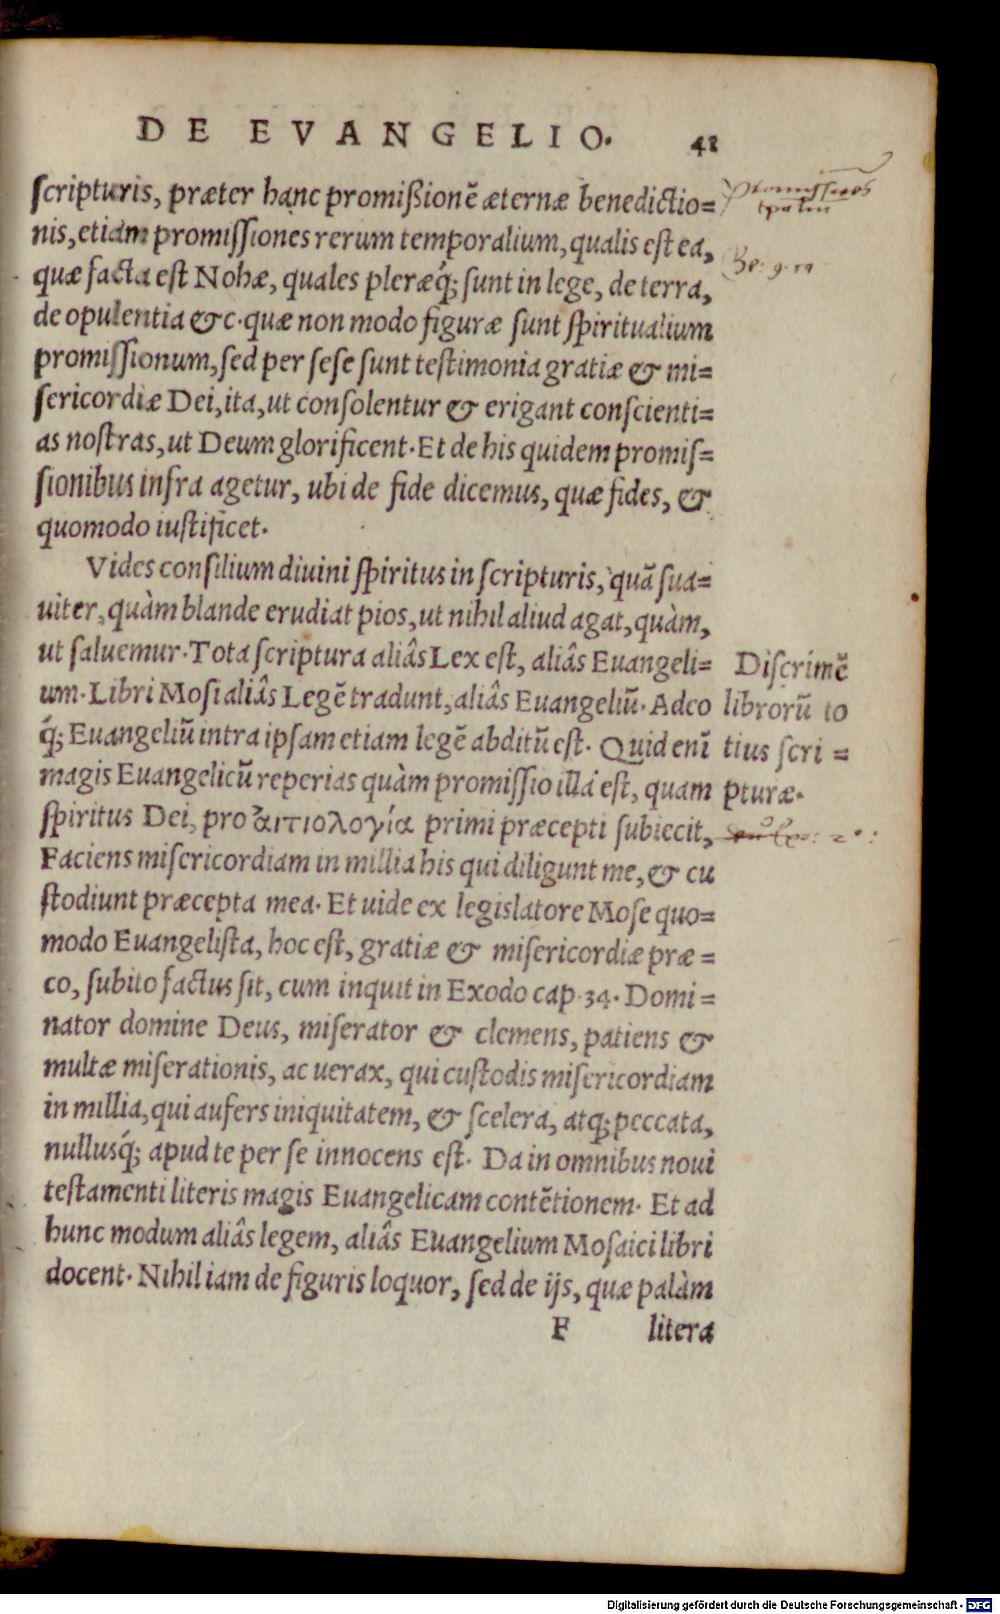 DE EVANGELIO. 41
ſcripturis, præter hanc promißionē æternæ benedictio=
nis, etiam promiſſiones rerum temporalium, qualis est ea,
quæ facta est Nohæ, quales pleræq́; ſunt in lege, de terra,
de opulentia &c. quæ non modo figuræ ſunt ſpiritualium
promiſſionum, ſed per ſeſe ſunt testimonia gratiæ & mi=
ſericordiæ Dei, ita, ut conſolentur & erigant conſcienti=
as nostras, ut Deum glorificent. Et de his quidem promiſ=
ſionibus infra agetur, ubi de fide dicemus, quæ fides, &
quomodo iustificet.
Vides conſilium diuini ſpiritus in ſcripturis, quā ſua=
uiter, quàm blande erudiat pios, ut nihil aliud agat, quàm,
ut ſaluemur. Tota ſcriptura aliâs Lex est, aliâs Euangeli=
um. Libri Moſi aliâs Legē tradunt, aliâs Euangeliū. Adeo
q́; Euangeliū intra ipſam etiam legē abditū est. Quid enī
magis Euangelicū reperias quàm promiſſio illa est, quam
ſpiritus Dei, pro ἀιτιολογία primi præcepti ſubiecit,
Faciens miſericordiam in millia his qui diligunt me, & cu
stodiunt præcepta mea. Et uide ex legislatore Moſe quo=
modo Euangelista, hoc est, gratiæ & miſericordiæ præ=
co, ſubito factus ſit, cum inquit in Exodo cap. 34. Domi=
nator domine Deus, miſerator & clemens, patiens &
multæ miſerationis, ac uerax, qui custodis miſericordiam
in millia, qui aufers iniquitatem, & ſcelera, atq; peccata,
nullusq́; apud te per ſe innocens est. Da in omnibus noui
testamenti literis magis Euangelicam contētionem. Et ad
hunc modum aliâs legem, aliâs Euangelium Moſaici libri
docent. Nihil iam de figuris loquor, ſed de ijs, quæ palàm
F litera
Diſcrimē
librorū to
tius ſcri=
pturæ.
Digitalisierung gefördert durch die Deutsche Forschungsgemeinschaft - DFG